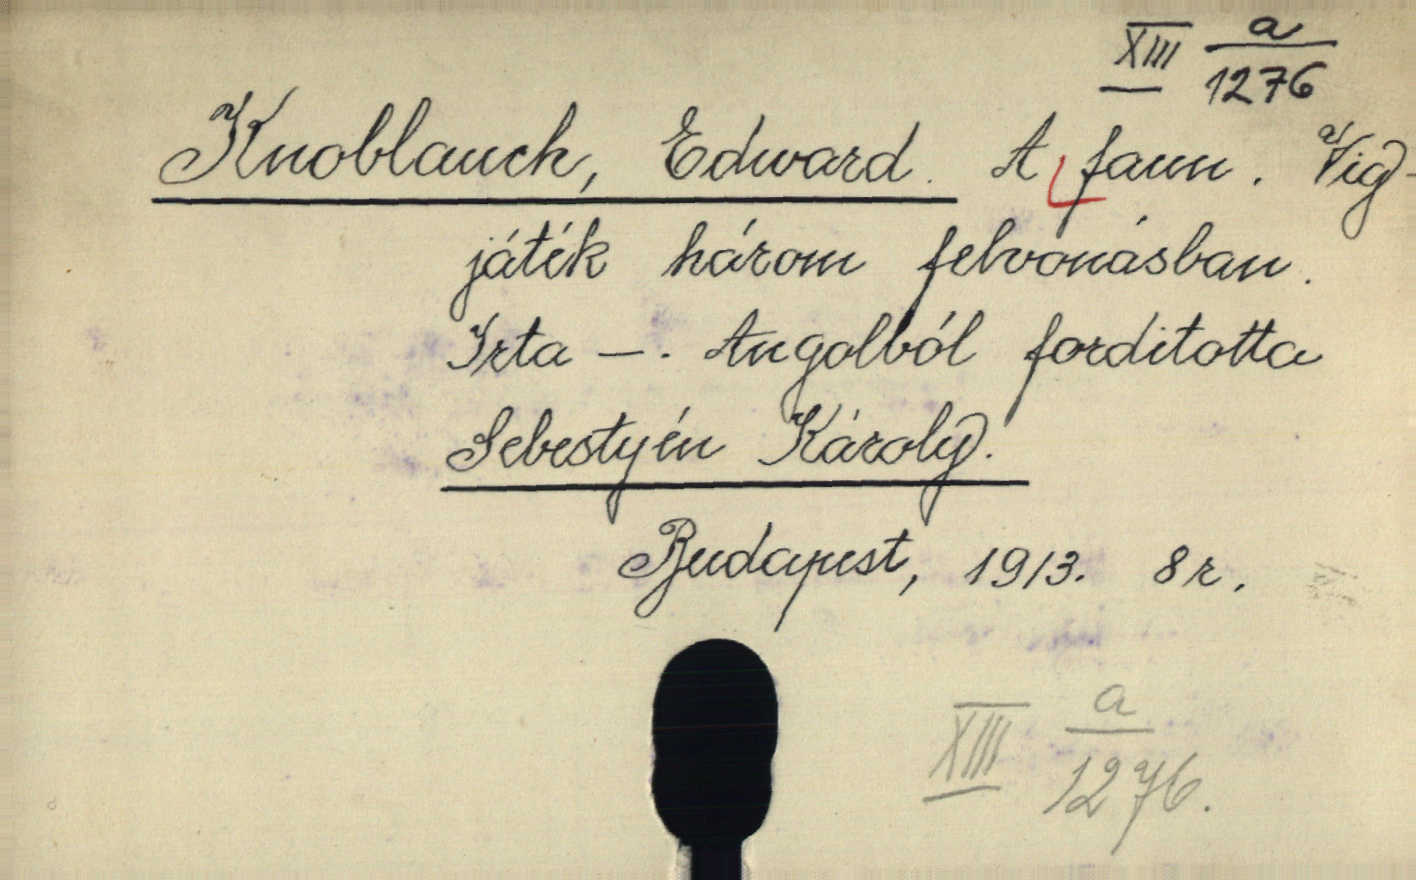 XIII a
1276
Knoblauch, Edward. A faun. Vig-
játék három felvonásban.
Irta —. Angolból forditotta
Sebestyén Károly.
Budapest, 1913. 8 r.
XIII a
1276.